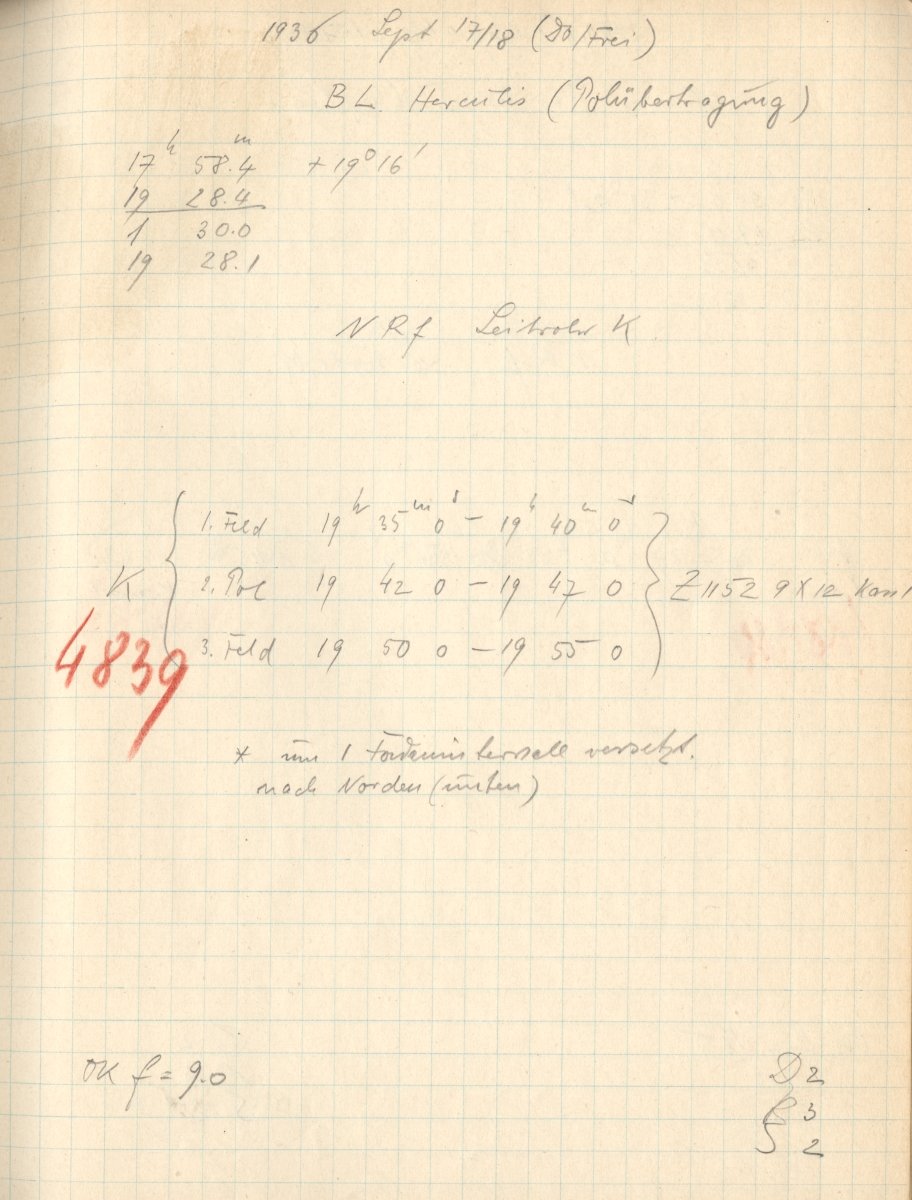 1936 Sept 17/18 (Do/Frei)
BL. Herculis (Polübertragung)
17h 58.4m + 19° 16'
19 28.4
1 30.0
19 28.1
NRf Leitrohr K
1. Feld 19h 35m 0s – 19h 40m 0s
K 2. Pol 19 42 0 – 19 47 0 Z 1152 9 X 12
4839 3. Feld 19 50 0 – 19 55 0
* um 1 Fadenintervall versetzt.
nach Norden (unten)
OK f = 9.0
D 2
3
2